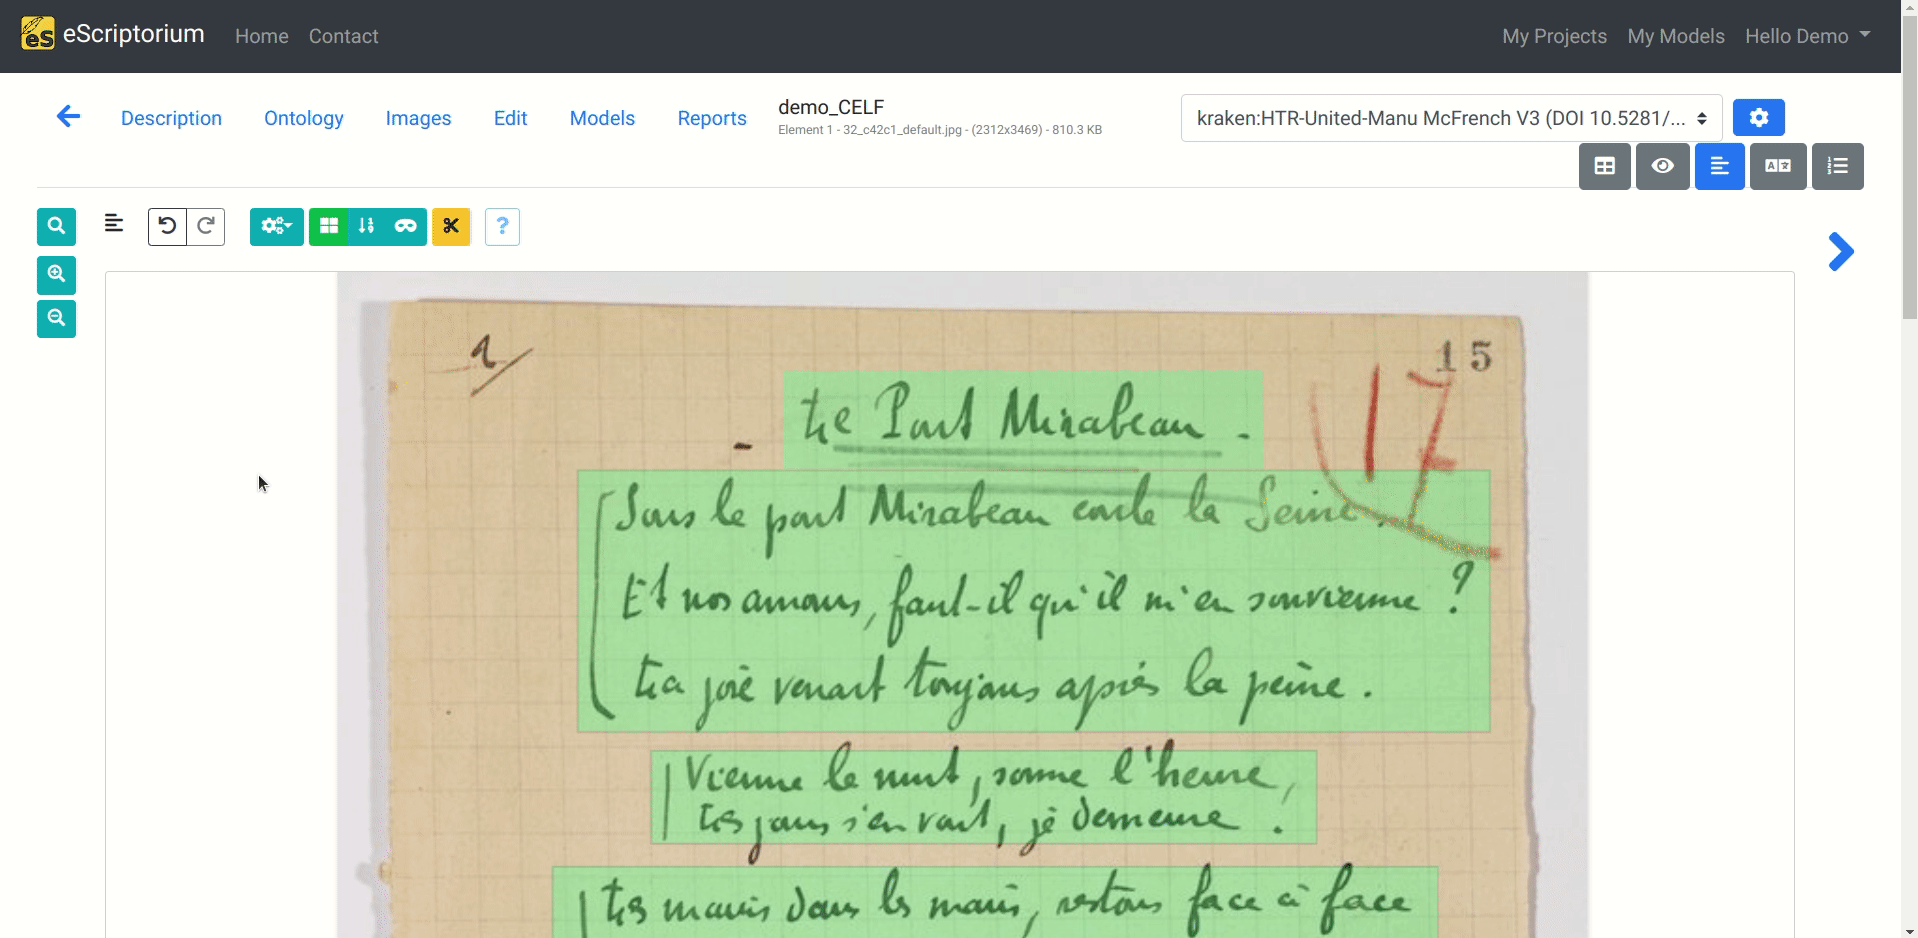 eScriptorium Home Contact My Projects My Models Hello Demo
Description Ontology Images Edit Models Reports
demo_CELF
Element 1 - 32_c42c1_default.jpg - (2312x3469) - 810.3 KB
kraken:HTR-United-Manu McFrench V3 (DOI 10.5281/...
?
1
15
17
- Le Pont Mirabeau -
Sous le pont Mirabeau coule la Seine.
Et nos amours, faut-il qu'il m'en souvienne ?
La joie venait toujours après la peine.
Vienne la nuit, sonne l'heure,
Les jours s'en vont, je demeure.
Les mains dans les mains, restons face à face